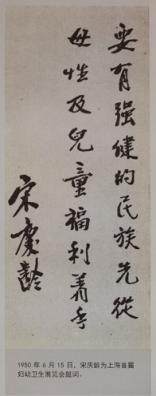 要有强健的民族先從
母性及兒童福利着手
宋慶齡
1950 年 6 月 15 日，宋庆龄为上海首届
妇幼卫生展览会题词。